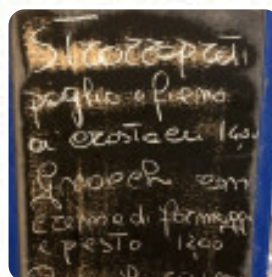 Strozzapreti
paglia e fieno
ai crostacei 14,00
Gnocchi con
crema di formaggi
e pesto 12,00